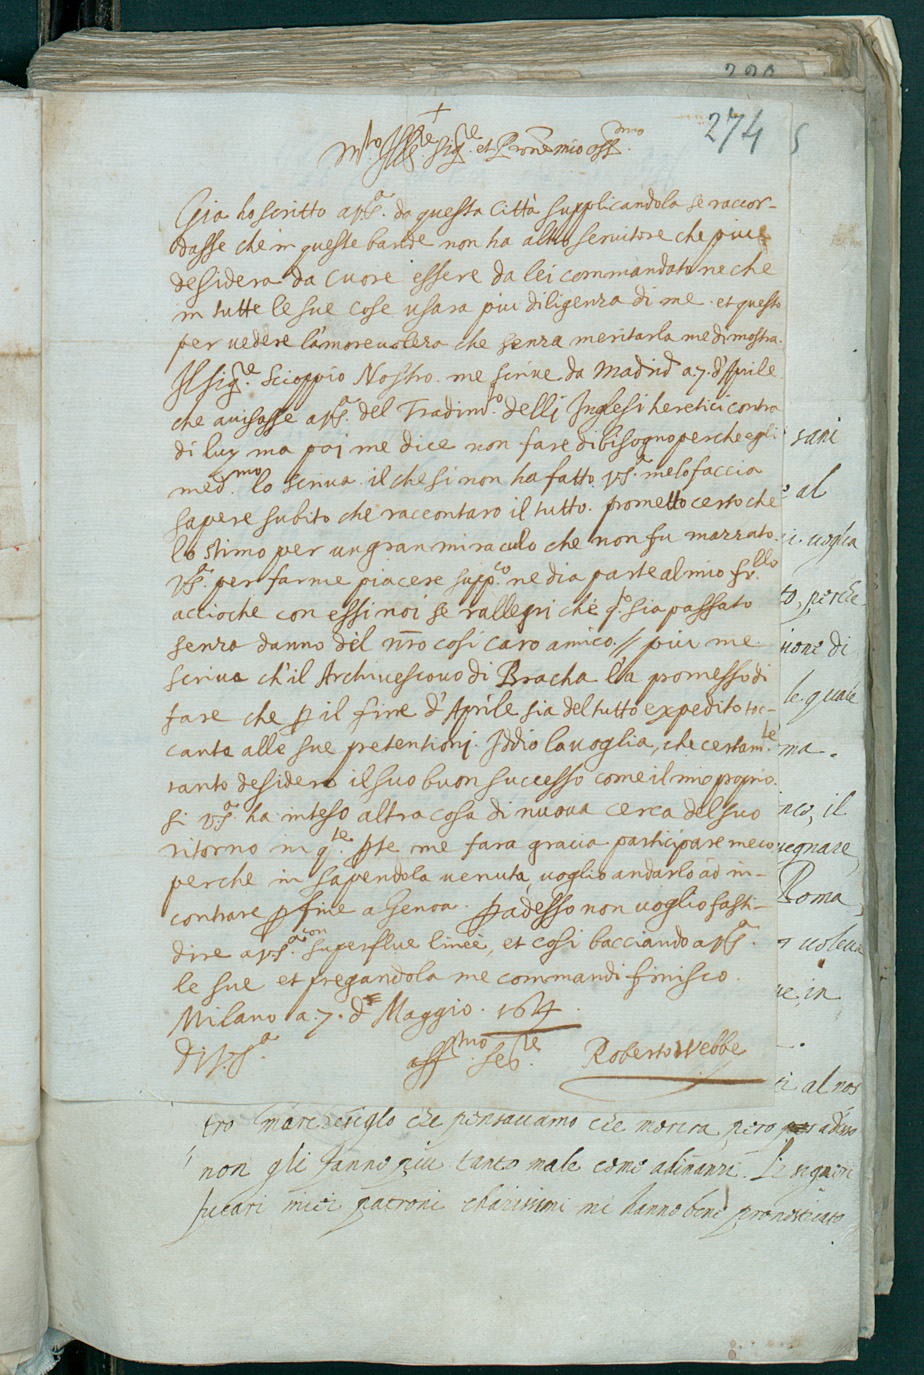 290
274
+
m.to Ill.re Sig.re et Prone mio oss.mo
Gia ho scritto a VS.a da questa Città supplicandola se raccor-
dasse che in queste bande non ha altro servitore che piu
desidera da cuore essere da lei commandato ne che
in tutte le sue cose usara piu diligenza di me. et questo
per vedere l'amorevoleza che senza meritarla me dimostra.
Il Sig.re Scioppio Nostro. me scrive da Madrid a 7. d'Aprile
che avisasse a VS.a del Tradim.to delli Inglesi heretici contra
di luy ma poi me dice non fare dibisogno perche egli
med.mo lo scriva. il che si non ha fatto VS.a me lo faccia
sapere subito che raccontaro il tutto. prometto certo che
lo stimo per un gran miraculo che non fu mazzato.
VS.a per farme piacere supp.co ne dia parte al mio fr.llo
accioche con essi noi se rallegri che q.o sia passato
senza danno del nro cosi caro amico. // piu me
scriva ch'il Archivescovo di Bracha l'a promesso di
fare che p il fine d'Aprile sia del tutto expedito toc-
cante alle sue pretentionj. Iddio la voglia, che certam.te
tanto desidero il suo buon successo come il mio proprio.
si VS.a ha inteso altra cosa di nuova cerca del suo
ritorno in q.te pte me fara gracia participare meco
perche in sapendola venuta voglio andarlo ad in-
contrare p fine a Genoa. p adesso non voglio fasti-
dire a VS.a con superflue linee, et cosi bacciando a VS.a
le sue et pregandola me commandi finisco.
Milano a. 7. de Maggio. 1614.
Di VS.a aff.mo Se.re Roberto Webbe
sani
al
voglia
to, perche
sione di
le quale
ma.
il
segnare
Roma
voleva
in
ti al nos
tro che pensavamo che morira, pero adesso
non gli fanno piu tanto male come adinanzi. Li signori
fucari miei patroni charissimi mi hanno bene pronosticato